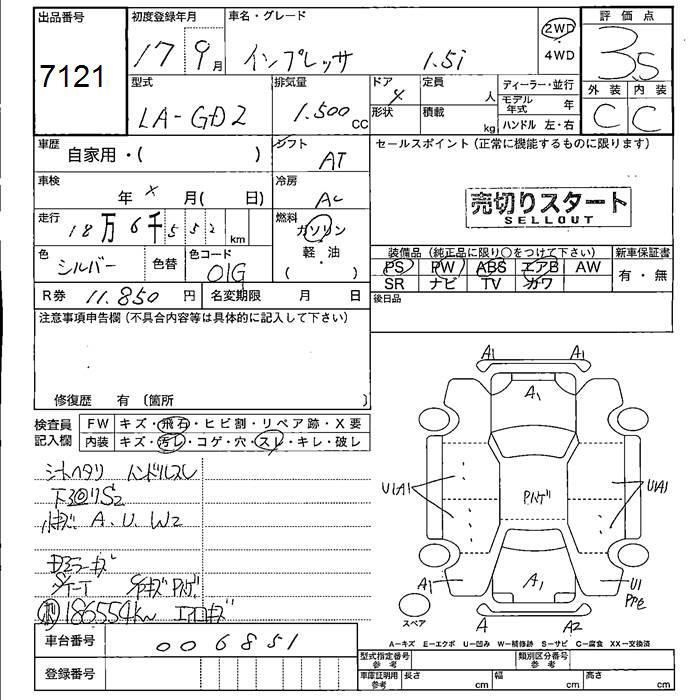 出品番号
7121
初度登録年月
17 9月
車名・グレード
インプレッサ 1.5i
2WD
・
4WD
評価点
3.5
外装 内装
C C
型式
LA-GD2
排気量
1.500 cc
ドア
4
形状
定員
人
積載
kg
ディーラー・並行
モデル年式 年
ハンドル 左・右
車歴
自家用・( )
シフト
AT
車検
年 × 月( 日)
冷房
AC
走行
18万6千552km
燃料
ガソリン
軽・油
( )
色
シルバー
色替
色コード
01G
R券 11.850 円
名変期限 月 日
セールスポイント(正常に機能するものに限ります)
売切りスタート
SELLOUT
装備品(純正品に限り○をつけて下さい)
PS PW ABS エアB AW
SR ナビ TV カワ
新車保証書
有・無
後日品
注意事項申告欄(不具合内容等は具体的に記入して下さい)
修復歴 有〔箇所 〕
検査員記入欄
FW キズ・飛石・ヒビ割・リペア跡・X要
内装 キズ・汚レ・コゲ・穴・スレ・キレ・破レ
シートヘタリ ハンドルスレ
A.U.W2
186554km エアロキズ
A1 A1
A1
U1A1
Pハゲ
U1A1
A1
A1
U1
A A2
スペア
A―キズ E―エクボ U―凹み W―補修跡 S―サビ C―腐食 XX―交換済
車台番号
006851
登録番号
型式指定番号
参考
類別区分番号
参考
車庫証明用
参考
長さ cm
幅 cm
高さ cm